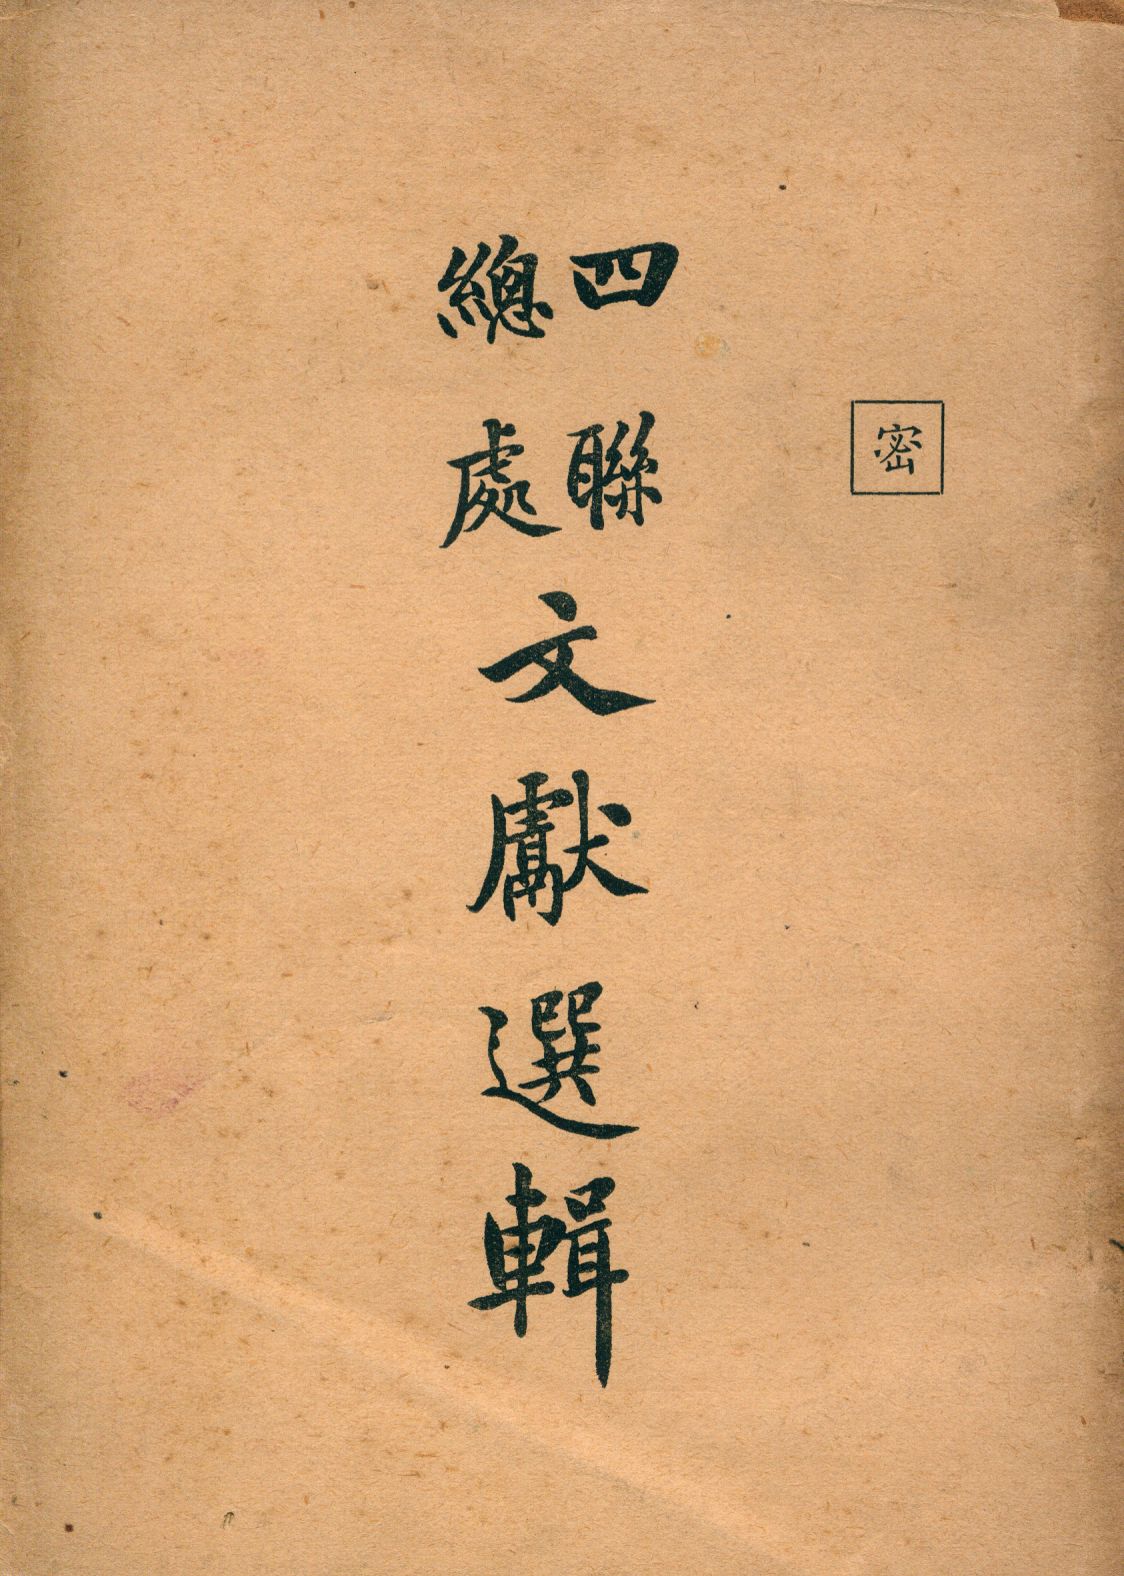 密
四聯
總處
文獻選輯